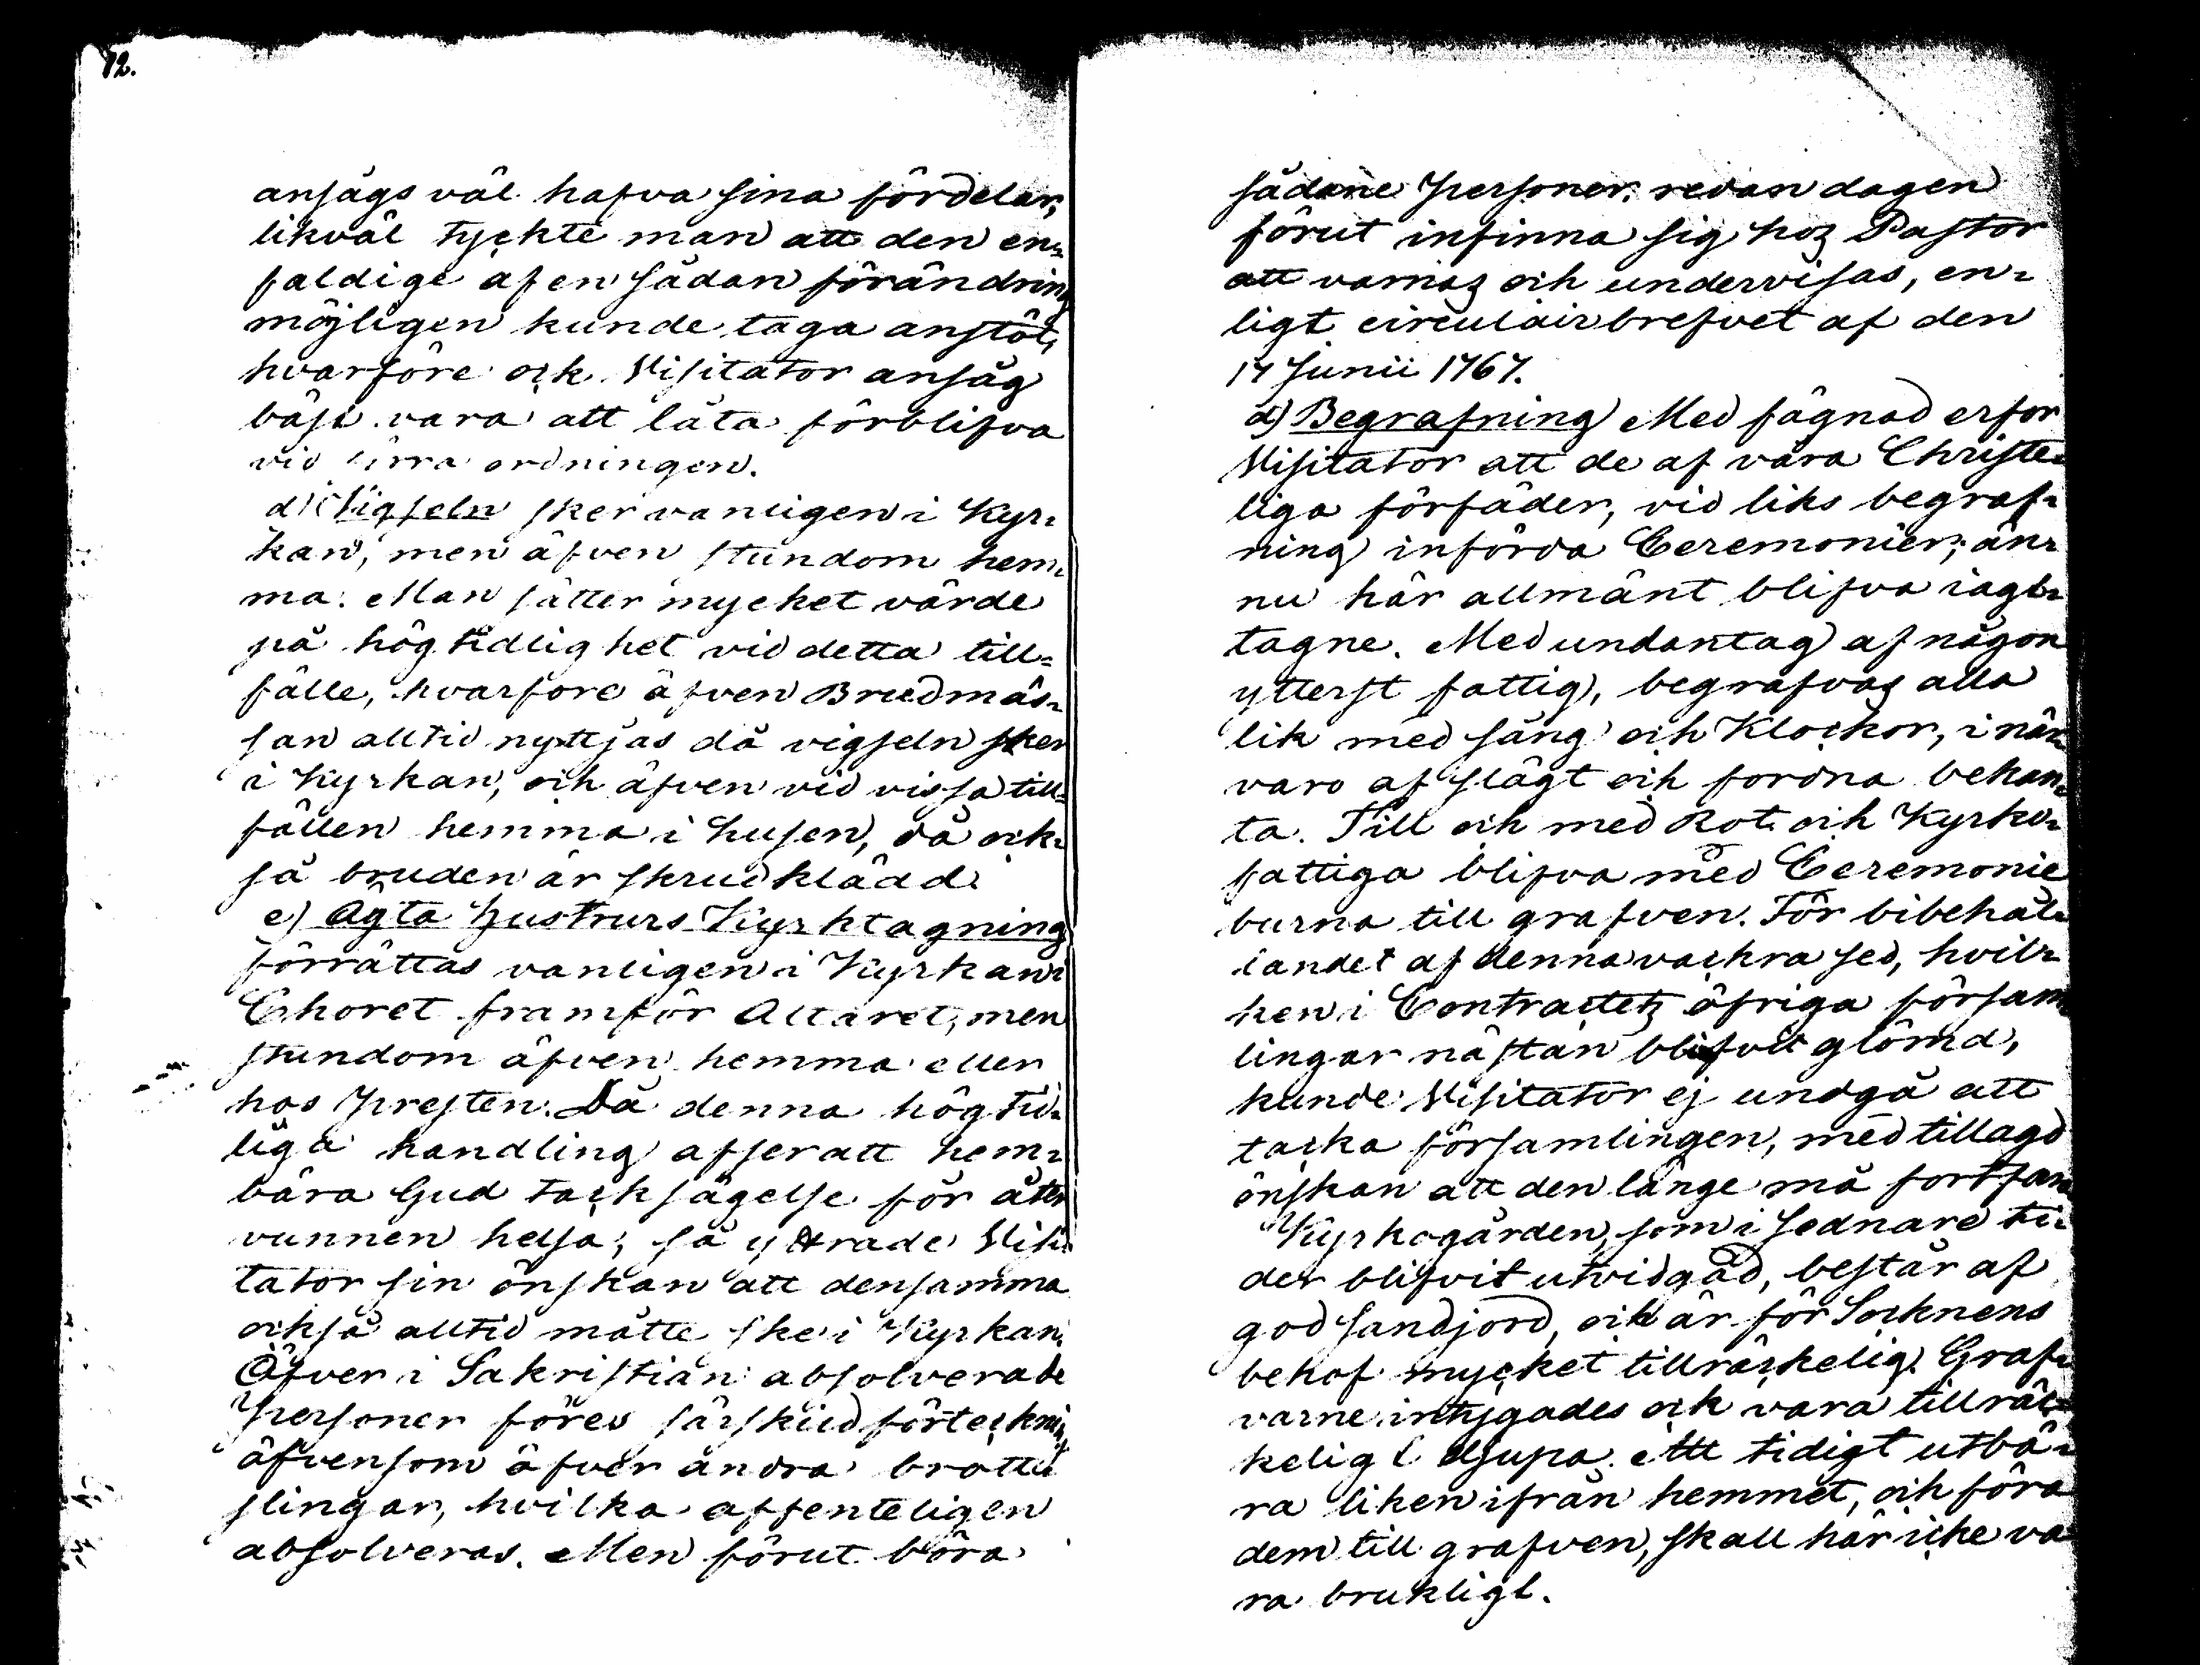 12.
ansågs väl hafva sina fördelar,
likväl tyckte man att den en=
faldige af en sådan förändring
möjligen kunde taga anstöt,
hvarföre ock Visitator ansåg
bäst vara att låta förblifva
vid förra ordningen.
d) Vigseln sker vanligen i Kyr=
kan, men äfven stundom hem=
ma. Man sätter mycket värde
på högtidlighet vid detta till=
fälle, hvarföre äfven Brudmäs=
san alltid nyttjas då vigseln sker
i Kyrkan, och äfven vid vissa till=
fällen hemma i husen, då ock=
så bruden är skrudklädd.
e) Ägta hustrurs Kyrktagning
förrättas vanligen i Kyrkan i
Choret framför Altaret, men
stundom äfven hemma eller
hos Presten. Då denna högtid=
liga handling afser att hem=
bära Gud tacksägelse för åter
vunnen helsa, så yttrade Visi=
tator sin önskan att densamma
också alltid måtte ske i Kyrkan.
Öfver i Sakristian absolverade
Personer föres särskild förteckning
äfvensom öfver andra brotts
slingar, hvilka offenteligen
absolveras. Men förut böra
sådane Personer redan dagen
förut infinna sig hoz Pastor
att varnaz och undervisas, en=
ligt circulairbrefvet af den
17 Junii 1767.
d) Begrafning Med fägnad erfor
Visitator att de af våra Christe=
liga förfäder, vid liks begraf=
ning införda Ceremonier, än=
nu här allmänt blifva iagt=
tagne. Med undantag af någon
ytterst fattig, begrafvas alla
lik med sång och Klockor, i när=
varo af slägt och fordna bekan=
ta. Till och med Rot och Kyrko=
fattiga blifva med Ceremonie
burna till grafven. För bibehål=
landet af denna vackra sed, hvil=
ken i Contractetz öfriga försam=
lingar nästan blifvit glömd,
kunde Visitator ej undgå att
tacka församlingen, med tillagd
önskan att den länge må fortfara
Kyrkogården, som i sednare ti=
der blifvit utvidgad, består af
god sandjord, och är för Socknens
behof mycket tillräckelig. Graf=
varne intygades ock vara tillräc=
keligt djupa. Att tidigt utbä=
ra liken ifrån hemmet, och föra
dem till grafven, skall här icke va
ra brukligt.